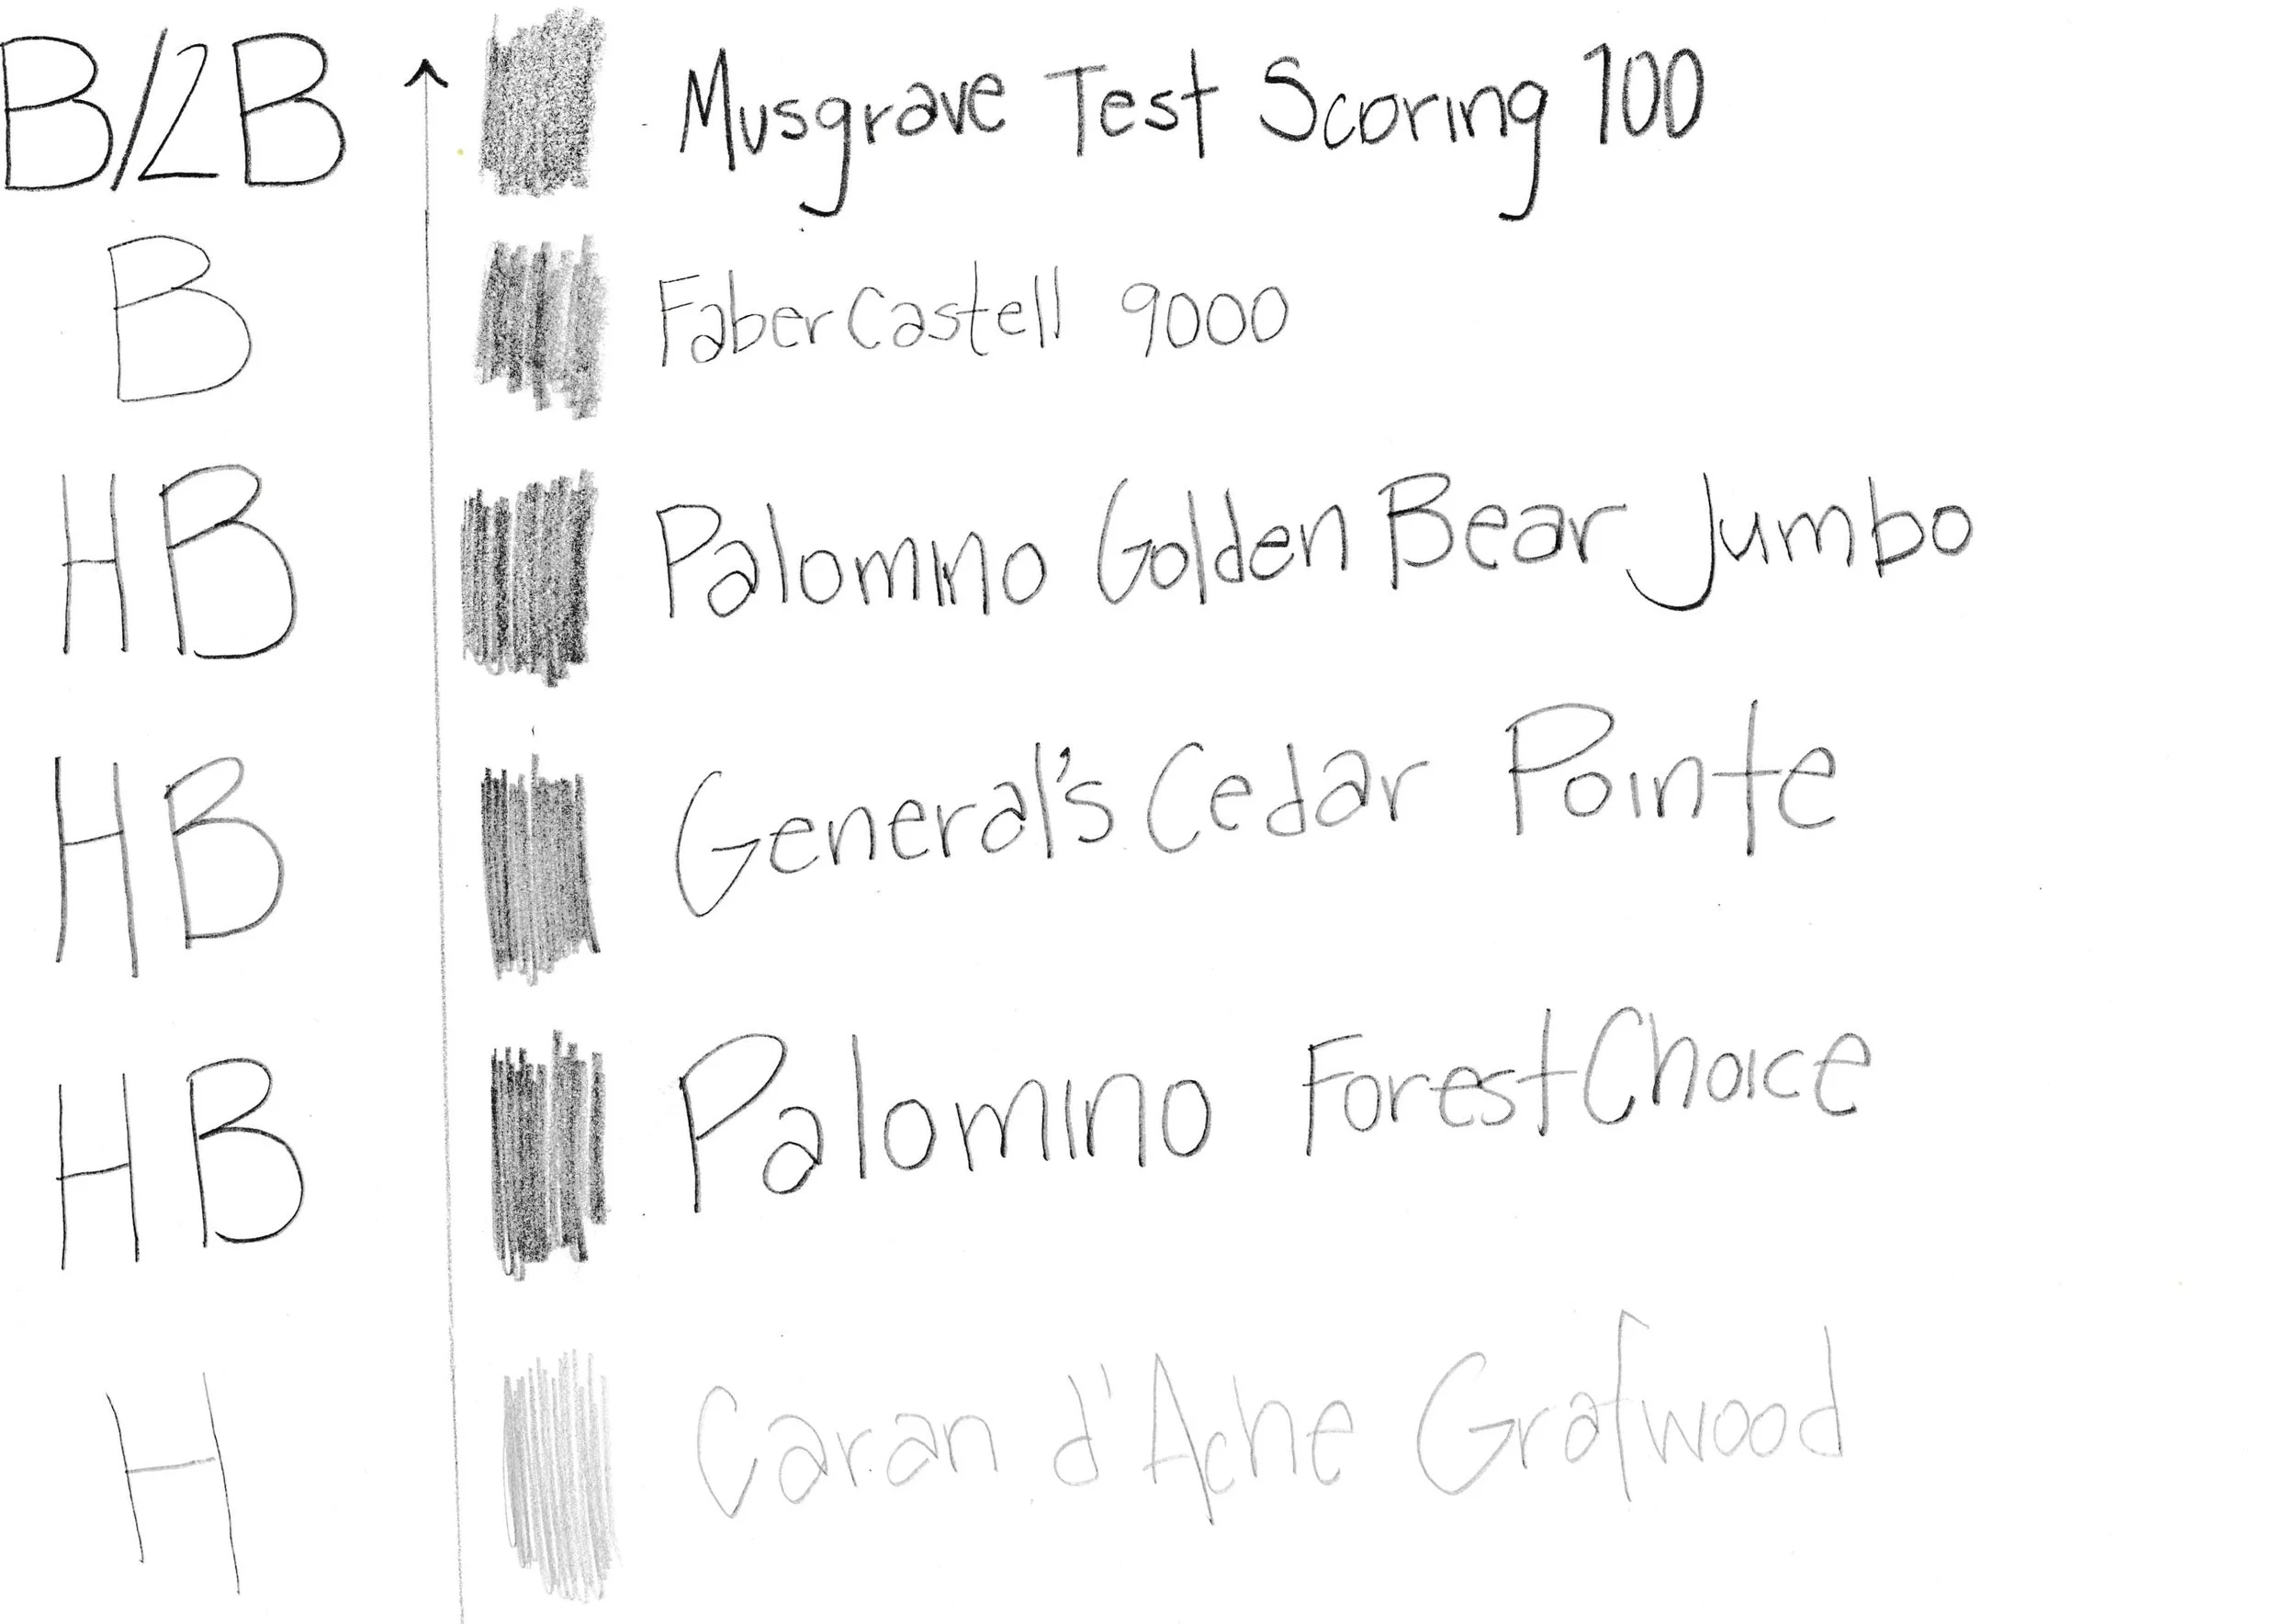 B/2B Musgrave Test Scoring 100
B Faber Castell 9000
HB Palomino Golden Bear Jumbo
HB General's Cedar Pointe
HB Palomino ForestChoice
H Caran d'Ache Grafwood